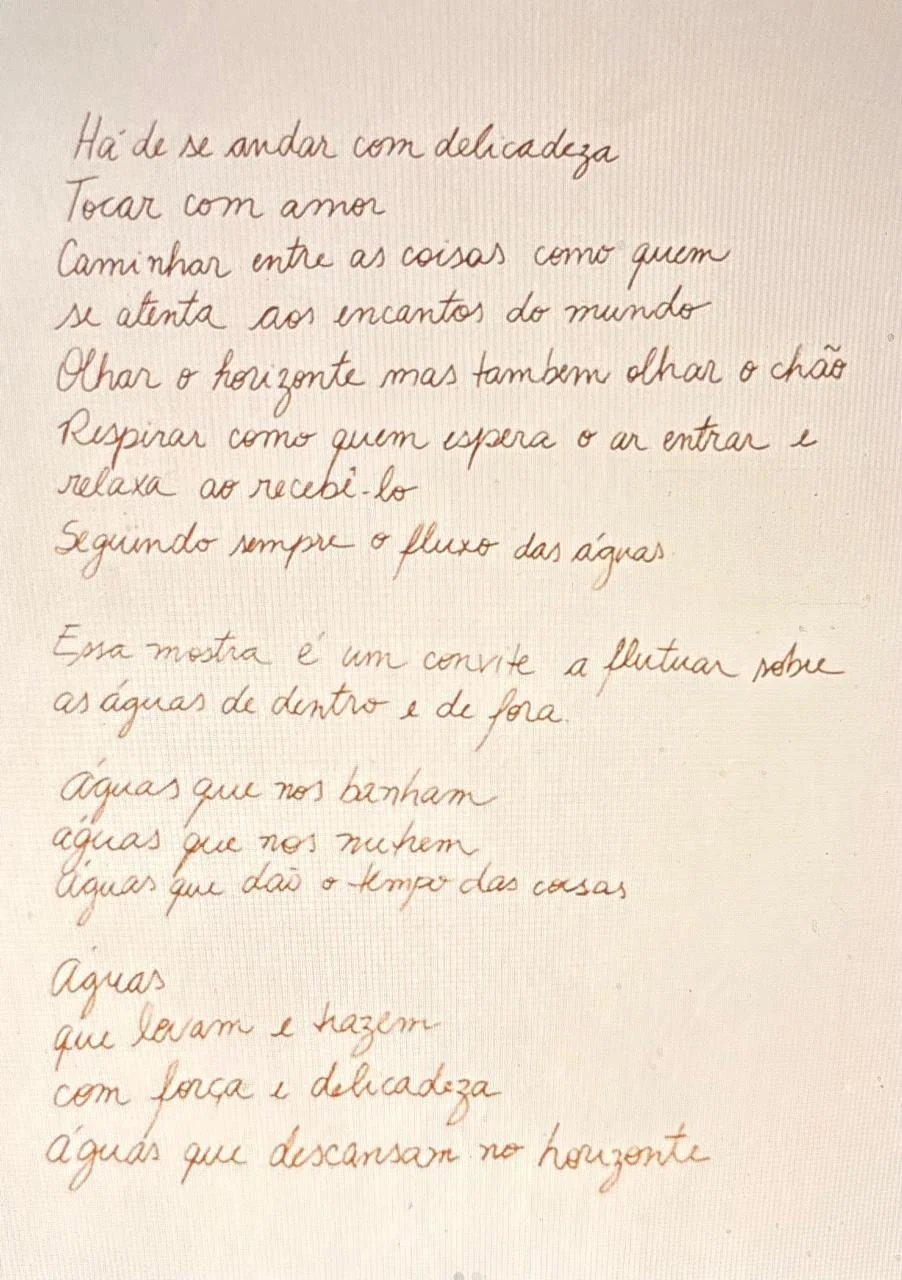 Há de se andar com delicadeza
Tocar com amor
Caminhar entre as coisas como quem
se atenta aos encantos do mundo
Olhar o horizonte mas tambem olhar o chão
Respirar como quem espera o ar entrar e
relaxa ao recebê-lo
Seguindo sempre o fluxo das águas
Essa mostra é um convite a flutuar sobre
as águas de dentro e de fora.
Águas que nos banham
águas que nos nutrem
Águas que dão o tempo das coisas
Águas
que levam e trazem
com força e delicadeza
Águas que descansam no horizonte